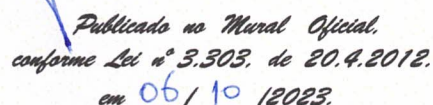 Publicado no Mural Oficial.
conforme Lei nº 3.303, de 20.4.2012.
em 06 / 10 /2023.